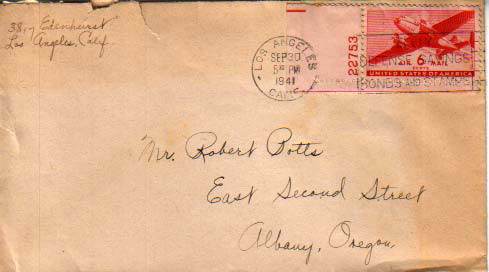 38,7 Edenhurst
Los Angeles, Calif.
LOS ANGELES
SEP 30
5 PM
1941
CALIF.
22753
DEFENSE SAVINGS
BONDS AND STAMPS
6
AIR MAIL
CENTS
UNITED STATES OF AMERICA
Mr. Robert Botts
East Second Street
Albany, Oregon.